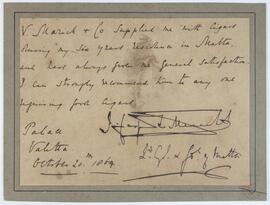 V. Marich & Co Supplied me with Cigars
during my Six Years residence in Malta,
and have always given me general Satisfaction
I can strongly recommend him to any one
requiring good Cigars
Palace
Valetta
October 20th 1864
Lt. Gl. & Gov. of Malta